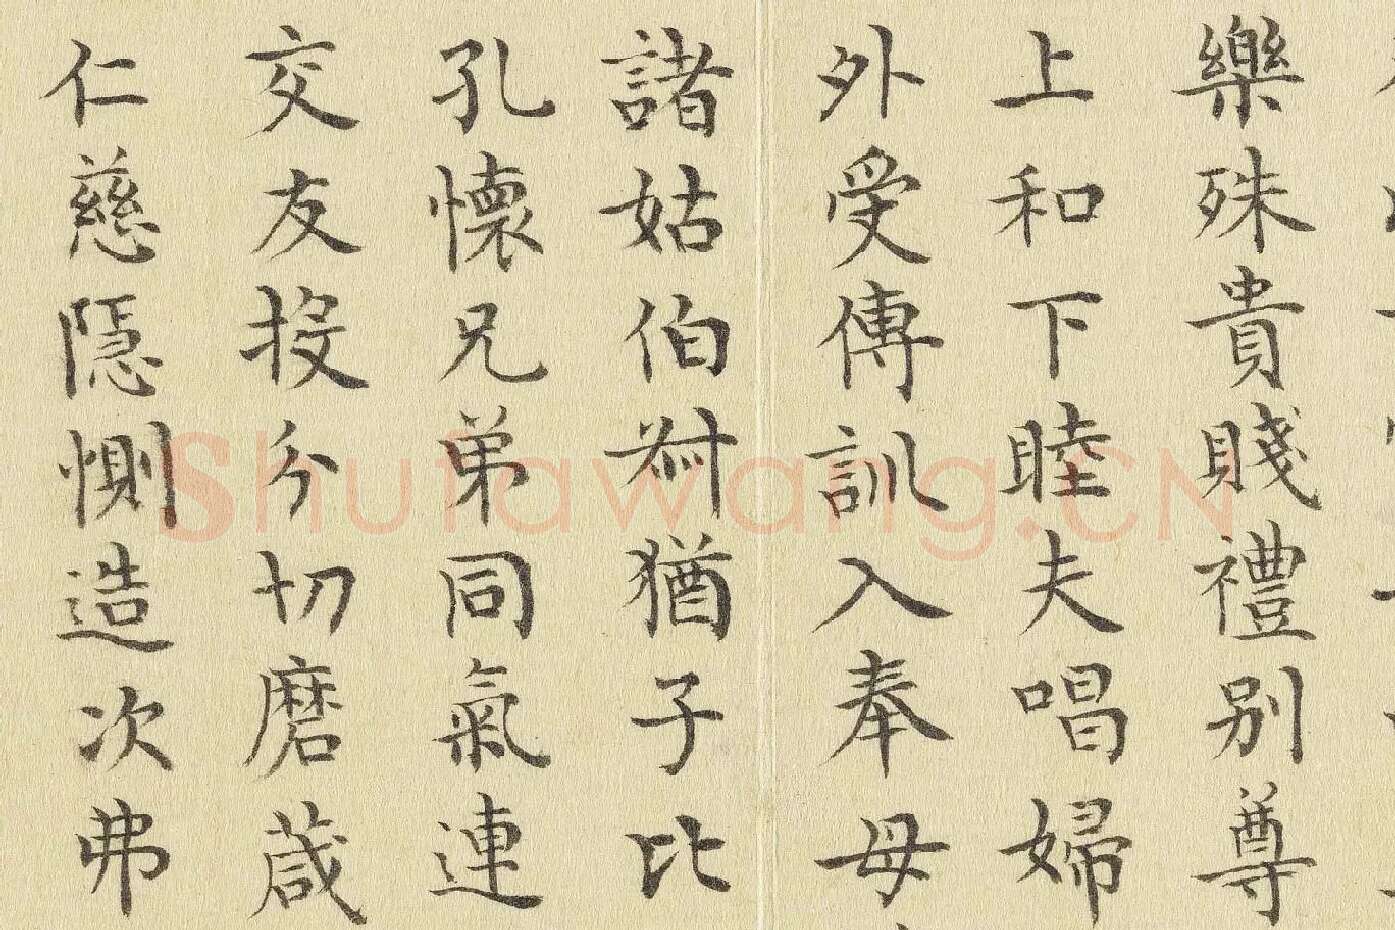 樂殊貴賤禮別尊
上和下睦夫唱婦
外受傅訓入奉母
諸姑伯叔猶子比
孔懷兄弟同氣連
交友投分切磨箴
仁慈隱惻造次弗
Shufawang.CN